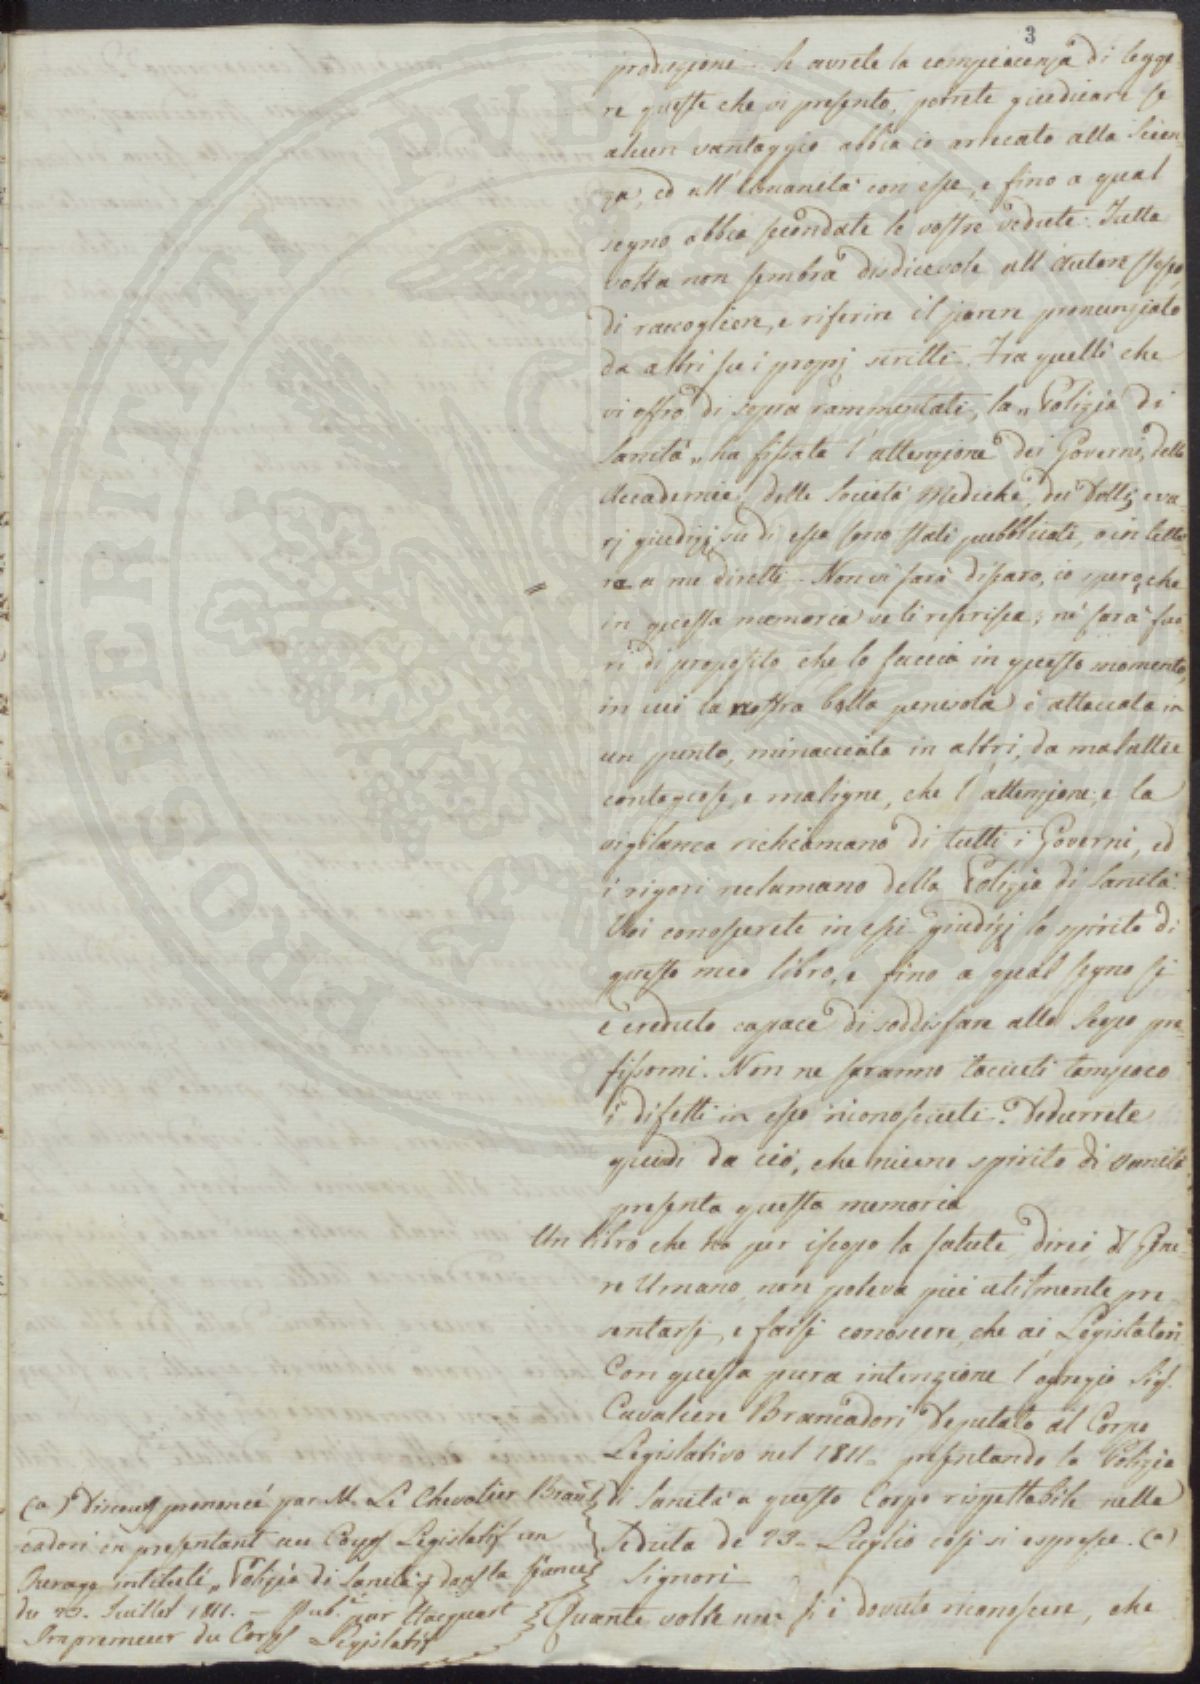 3
produzioni. Se avrete la compiacenza di legge-
re queste che vi presento, potrete giudicare se
alcun vantaggio abbia io arrecato alla Scien-
za, ed all'umanità con esse, e fino a qual
segno abbia secondate le vostre vedute. Tutta
volta non sembra disdicevole all'Autore stesso,
di raccogliere, e riferire il parere pronunziato
da altri su i proprj scritti. Fra quelli che
vi offro di sopra rammentati, la „Polizia di
Sanità„ ha fissata l'attenzione dei Governi, delle
Accademie, delle Società Mediche, dei Dotti; e va-
rj giudizj su di essa sono stati pubblicati, o in lette-
re a me diretti. Non vi sarà discaro, io spero, che
in questa memoria ve li referisca; nè sarà fuo-
ri di proposito che lo faccia in questo momento,
in cui la nostra bella penisola è attaccata in
un punto, minacciata in altri, da malattie
contagiose, e maligne, che l'attenzione, e la
vigilanza richiamano di tutti i Governi, ed
i rigori reclamano della Polizia di Sanità.
Voi conoscerete in essi giudizj lo spirito di
questo mio libro, e fino a qual segno si
è creduto capace di soddisfare allo scopo pre-
fissomi. Non ne saranno taciuti tampoco
i difetti in esso riconosciuti. Dedurrete
quindi da ciò, che niuno spirito di vanità
presenta questa memoria
Un libro che ha per iscopo la salute, direi, del Gene-
re Umano, non poteva più utilmente pre-
sentarsi, e farsi conoscere, che ai Legislatori
Con questa pura intenzione l'egregio Sig.
Cavaliere Brancadori Deputato al Corpo
Legislativo nel 1811. presentando la Polizia
di Sanità a questo Corpo rispettabile nella
Seduta de 23. Luglio così si espresse. (a)
Signori
Quante volte non si è dovuto riconoscere, che
(a) Discours prononcé par M. Le Chevalier Bran-
cadori en presentant au Corps Legislatif un
Ouvrage intitulé „Polizia di Sanità„ dans la séance
du 23. Juillet 1811. — Pub. par Hacquart
Imprimeur du Corps Legislatif